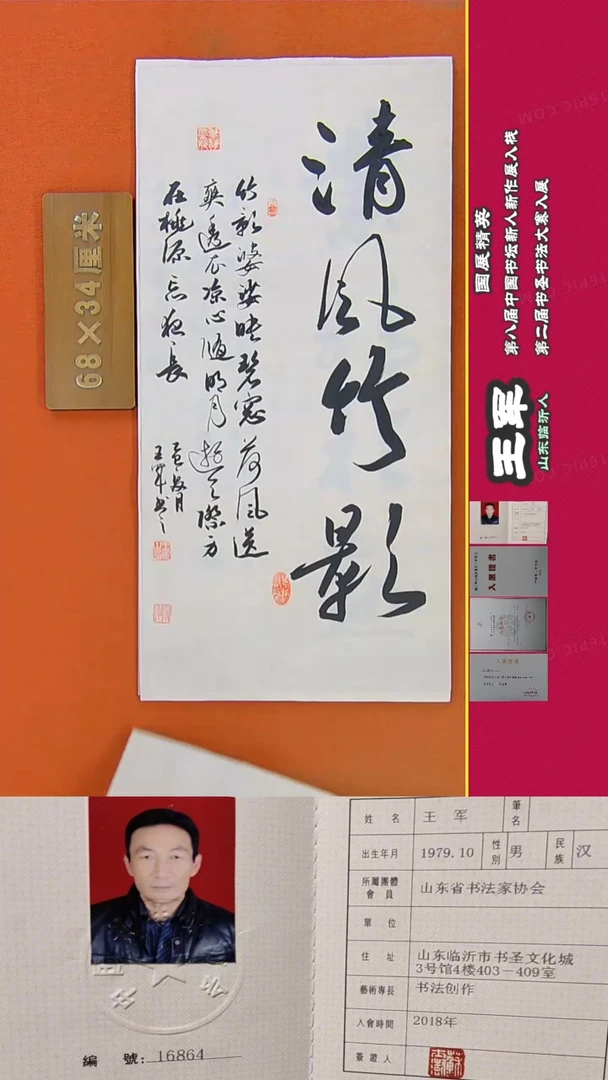 清风竹影
竹影婆娑映碧窓荷风送
爽透衣凉心随明月游天際方
在桃源忘夜長
王军书之
68×34厘米
国展精英
第八届中国书坛新人新作展入展
第二届书圣书法大赛入展
王军
山东临沂人
編 號：16864
姓 名 王 军 筆名
出生年月 1979.10 性別 男 民族 汉
所屬團體會員 山东省书法家协会
單 位
住 址 山东临沂市书圣文化城
3号馆4楼403－409室
藝術專長 书法创作
入會時間 2018年
簽證人